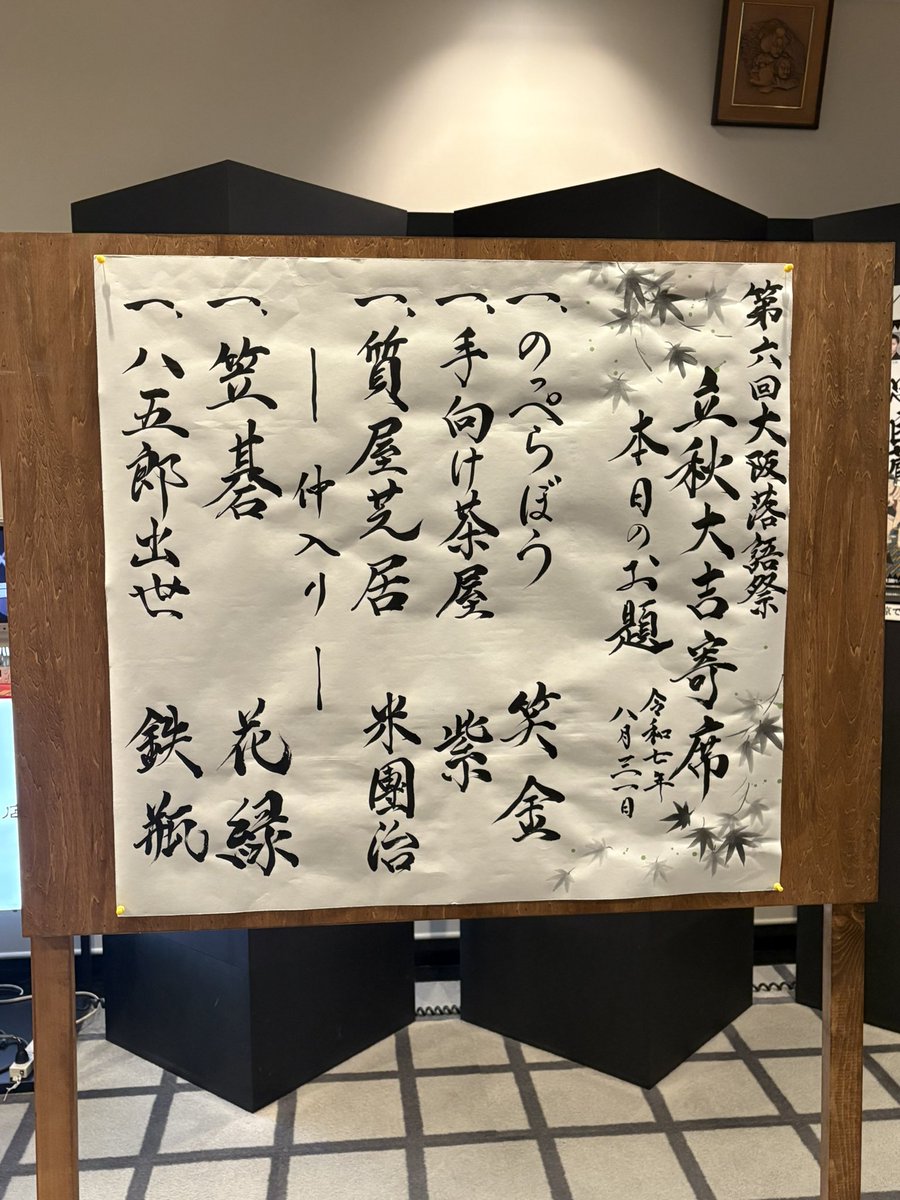 第六回大阪落語祭
立秋大吉寄席
本日のお題
令和七年
八月三一日
一、のっぺらぼう 笑金
一、手向け茶屋 紫
一、質屋芝居 米團治
― 仲入り ―
一、笠碁 花緑
一、八五郎出世 鉄瓶